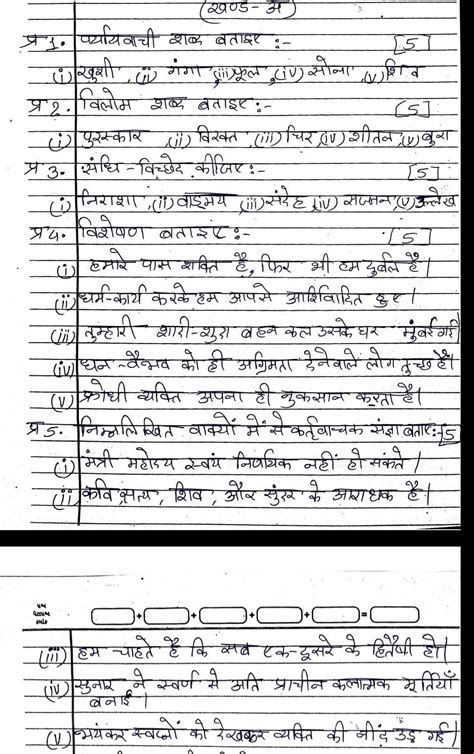 (खण्ड-अ)
प्र 1. पर्यायवाची शब्द बताइए :- [5]
(i) खुशी, (ii) गंगा (iii) फूल, (iv) सोना, (v) शिव
प्र 2. विलोम शब्द बताइए :- [5]
(i) पुरस्कार (ii) विरक्त, (iii) चिर (iv) शीतल, (v) बुरा
प्र 3. संधि-विच्छेद कीजिए :- [5]
(i) निराशा, (ii) वाङ्मय, (iii) संदेह, (iv) सज्जन, (v) उल्लेख
प्र 4. विशेषण बताइए :- [5]
(i) हमारे पास शक्ति है, फिर भी हम दुर्बल है।
(ii) धर्म-कार्य करके हम आपसे आर्शिवादित हुए।
(iii) तुम्हारी शादी-शुदा बहन कल उसके घर मुंबई गई
(iv) धन-वैभव को ही अग्रिमता देनेवाले लोग तुच्छ है।
(v) क्रोधी व्यक्ति अपना ही नुकसान करता है।
प्र 5. निम्नलिखित वाक्यों में से कर्तृवाचक संज्ञा बताए:-[5
(i) मंत्री महोदय स्वयं निर्णायक नहीं हो सकते।
(ii) कवि सत्य, शिव, और सुंदर के आराधक है।
+ + + + =
(iii) हम चाहते है कि सब एक-दूसरे के हितैषी हो।
(iv) सुनार ने स्वर्ण से अति प्राचीन कलात्मक मूर्तियाँ
बनाई।
(v) भयंकर स्वप्नों को देखकर व्यक्ति की नींद उड़ गई।